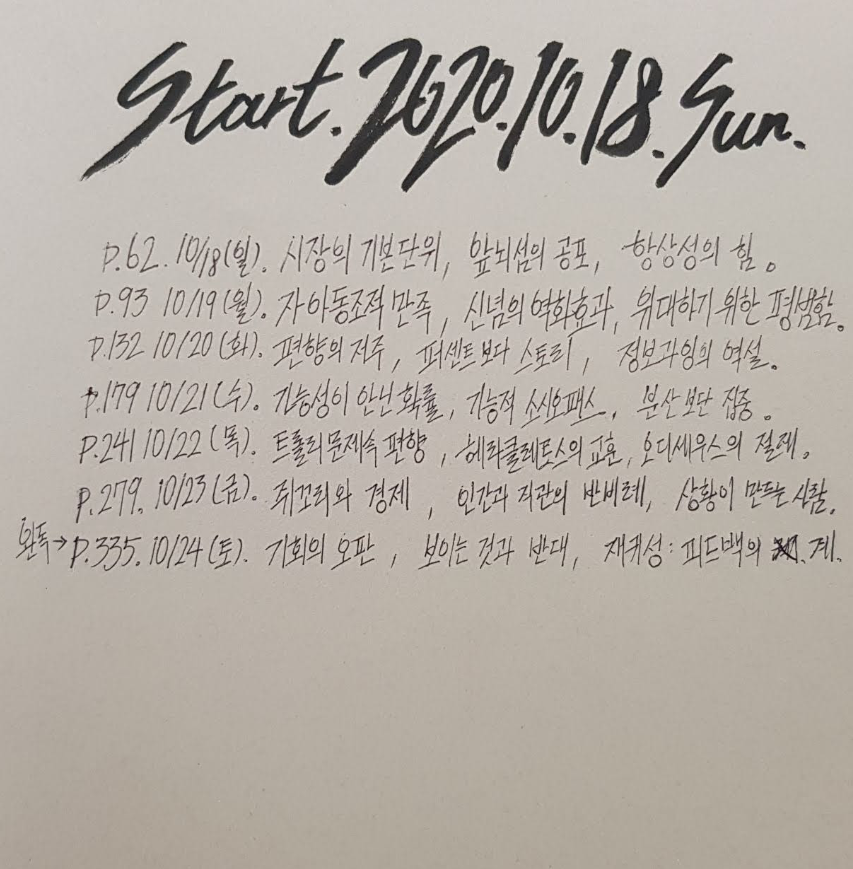 Start. 2020.10.18. Sun.
P.62. 10/18(일). 시장의 기본단위, 앞뇌섬의 공포, 항상성의 힘.
P.93 10/19(월). 자아동조적 만족, 신념의 역화효과, 위대하기 위한 평범함.
P.132 10/20(화). 편향의 저주, 퍼센트보다 스토리, 정보과잉의 역설.
P.179 10/21(수). 가능성이 안닌 확률, 기능적 소시오패스, 분산보단 집중.
P.241 10/22(목). 트롤리문제속 편향, 헤라클레토스의 교훈, 오디세우스의 절제.
P.279. 10/23(금). 쥐꼬리와 경제, 인간과 직관의 반비례, 상황이 만드는 사람.
완독→P.335. 10/24(토). 기회의 오판, 보이는 것과 반대, 재귀성: 피드백의 계.